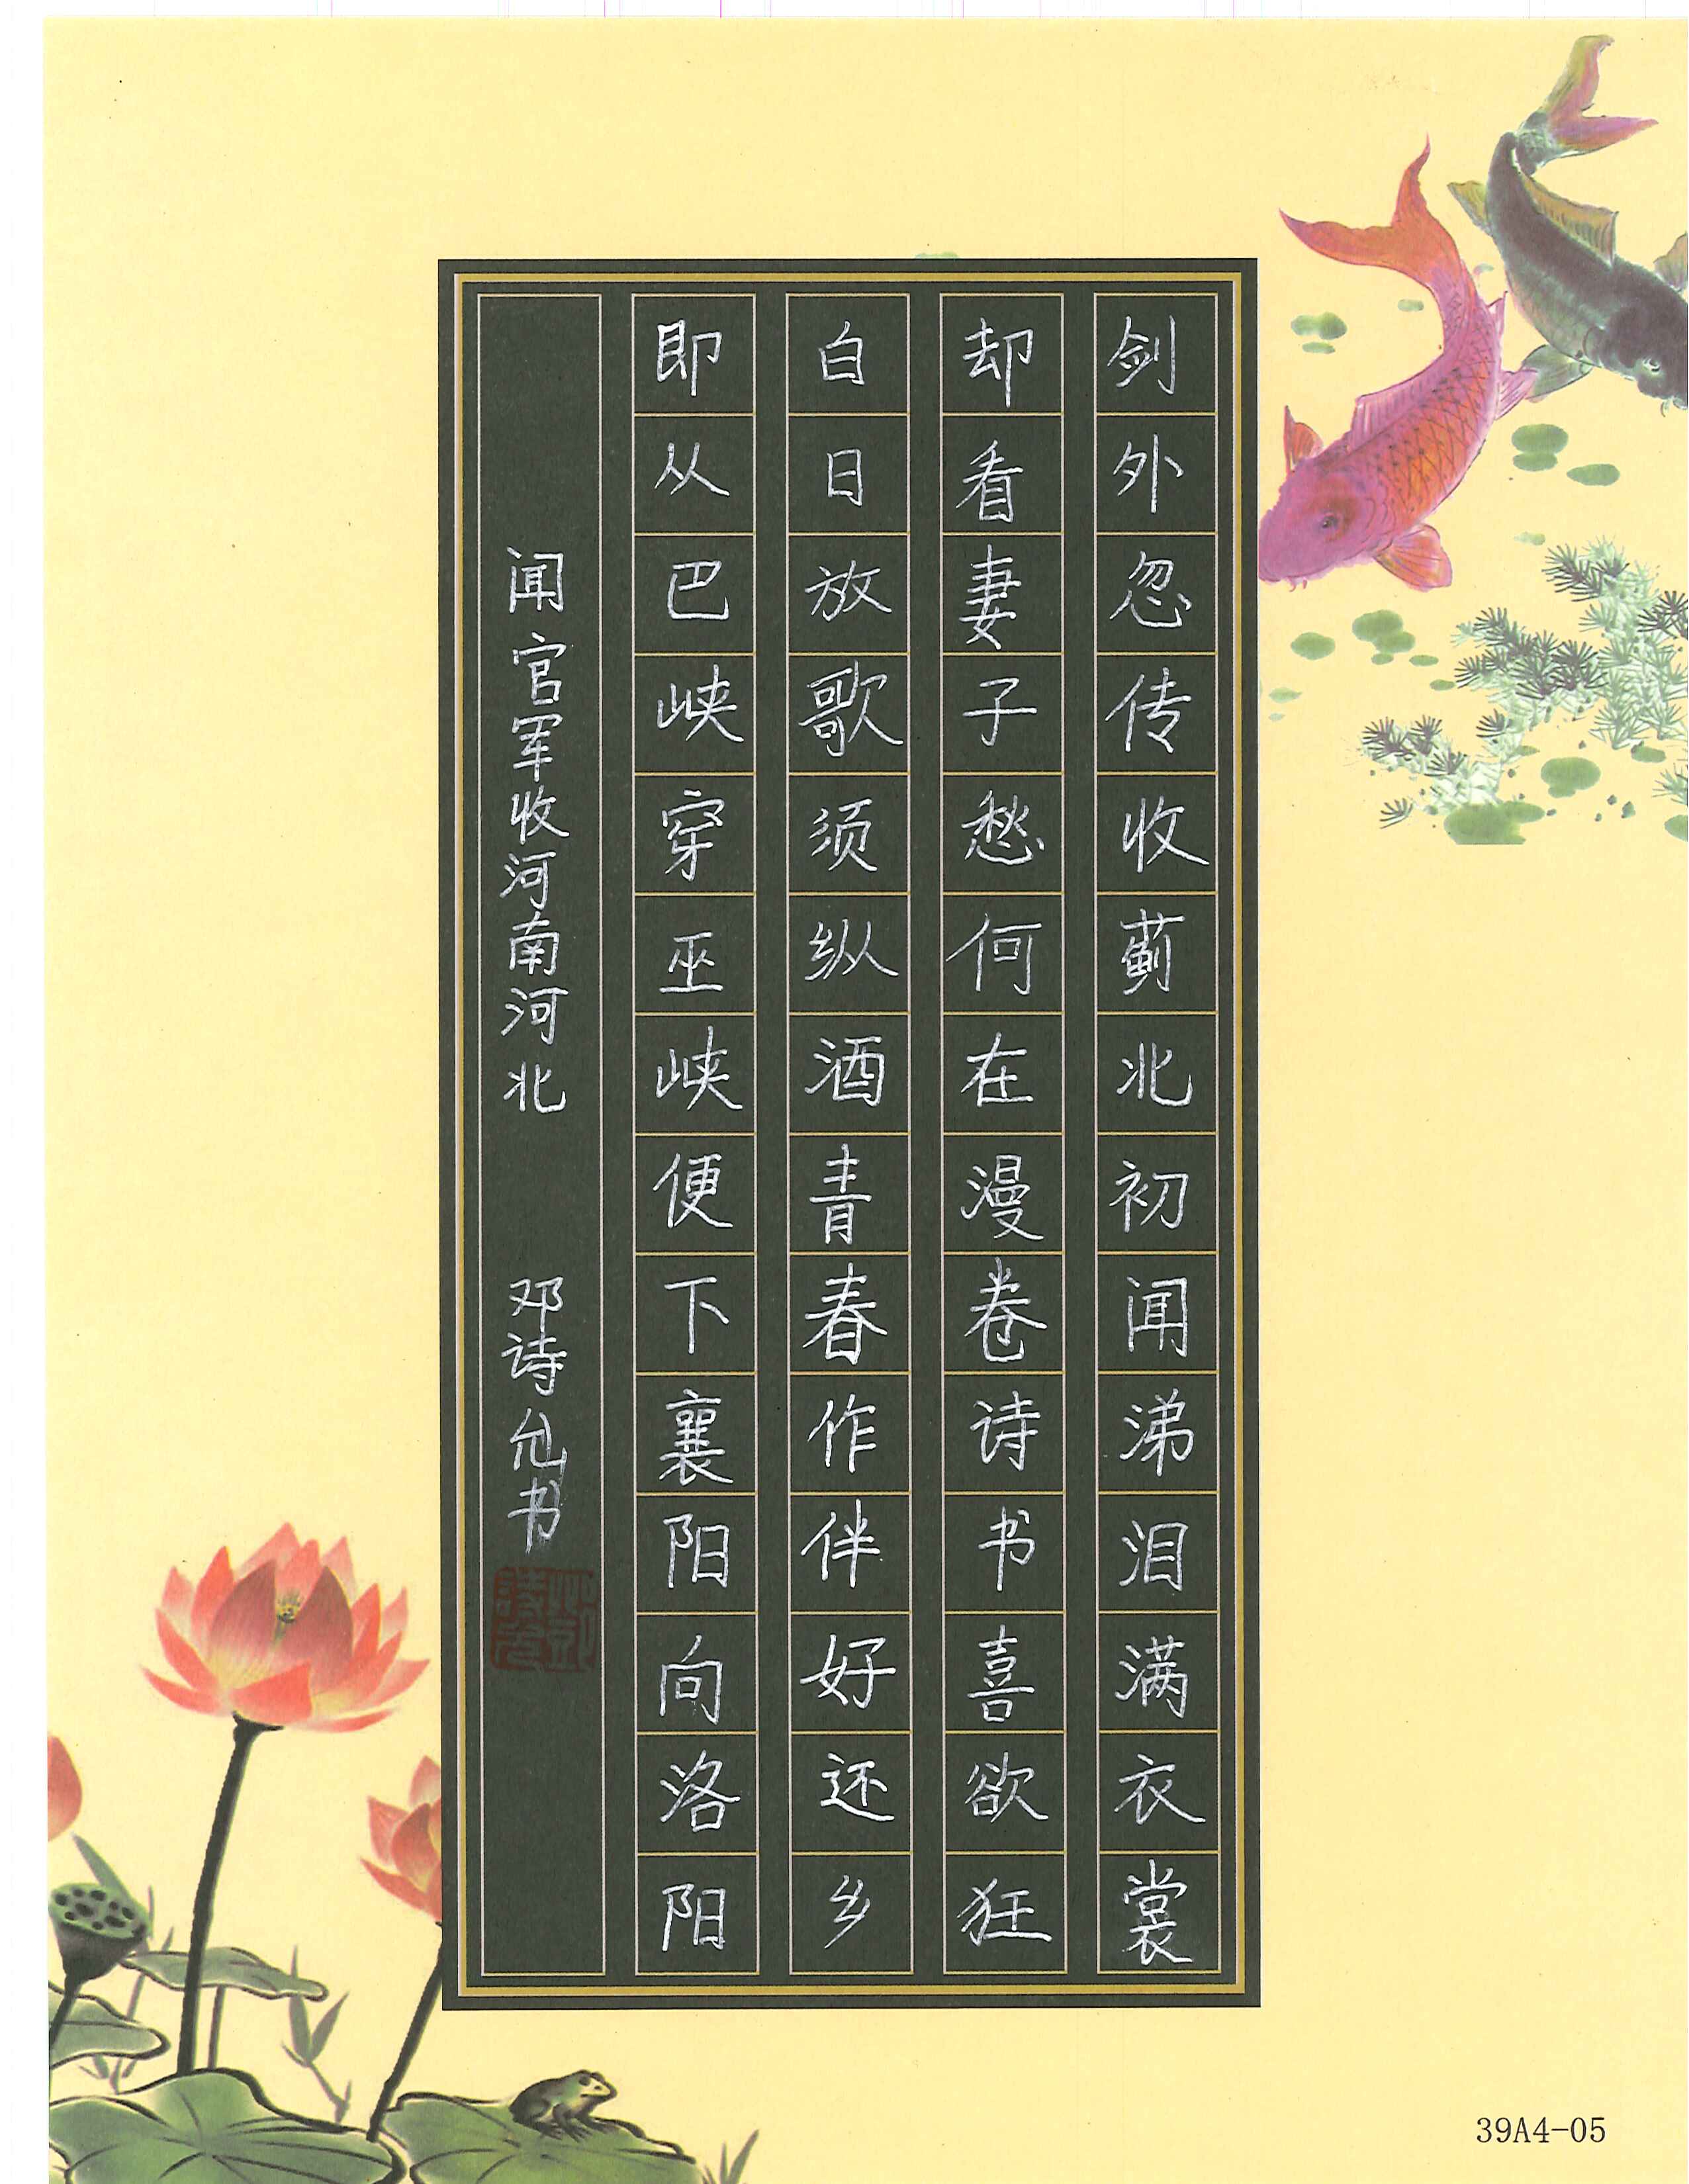 剑外忽传收蓟北初闻涕泪满衣裳
却看妻子愁何在漫卷诗书喜欲狂
白日放歌须纵酒青春作伴好还乡
即从巴峡穿巫峡便下襄阳向洛阳
闻官军收河南河北 邓诗允书
39A4-05